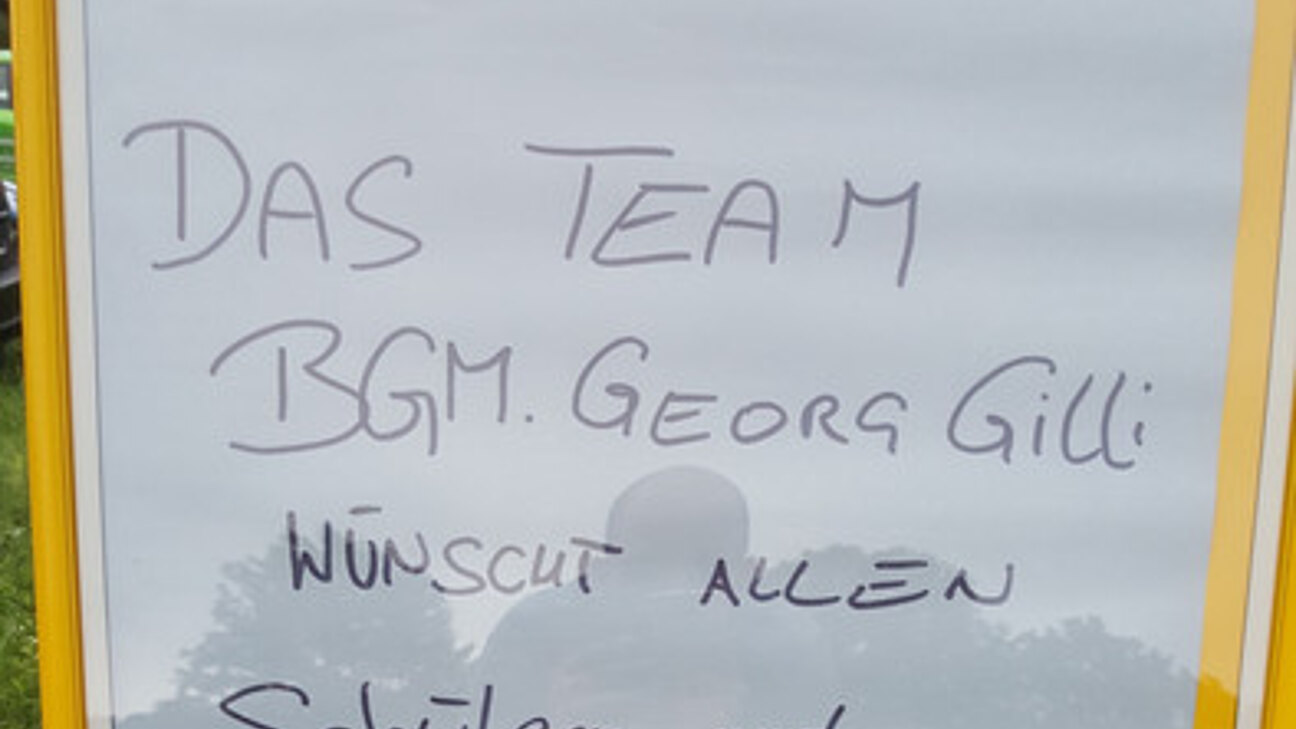 DAS TEAM
BGM. GEORG Gilli
WÜNSCHT ALLEN